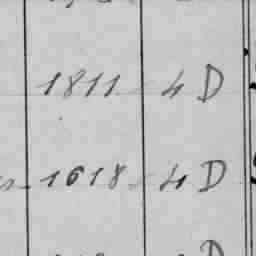 1811 4 D
1618 4 D